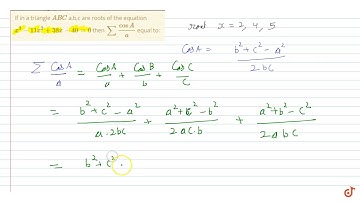 If in a triangle ABC a,b,c are roots of the equation
then ∑ cos A / a equal to:
root x = 2, 4, 5
Cos A = (b² + c² - a²) / 2bc
∑ Cos A / a = Cos A / a + Cos B / b + Cos C / c
= (b² + c² - a²) / a·2bc + (a² + c² - b²) / 2ac·b + (a² + b² - c²) / 2abc
= b² + c²